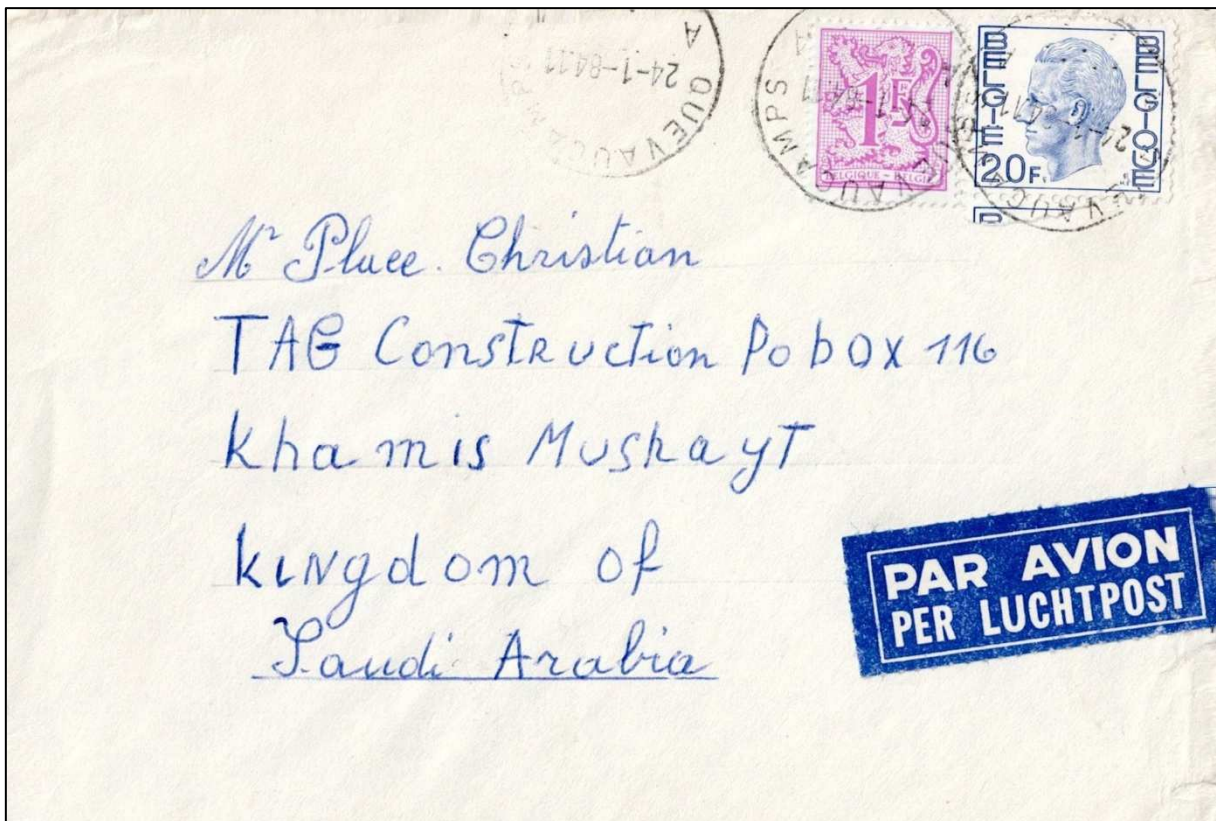 QUEVAUCAMPS
24-1-84 11
A
QUEVAUCAMPS
1F
BELGIQUE - BELGIË
BELGIE
BELGIQUE
20F.
24-1-84 11
Mr Place. Christian
TAG Construction Po box 116
Khamis Mushayt
Kingdom of
Saudi Arabia
PAR AVION
PER LUCHTPOST